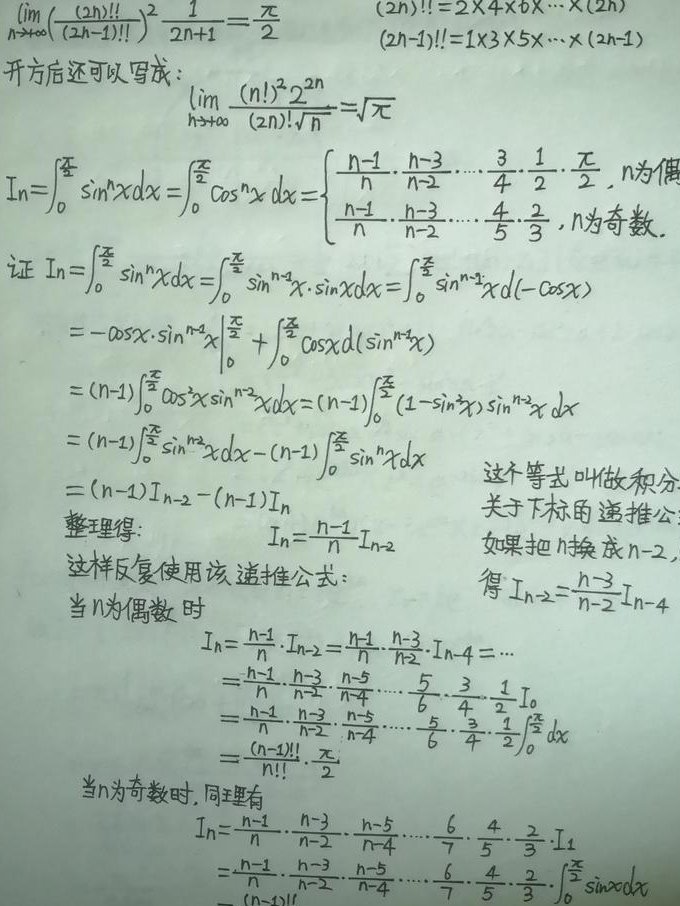 lim n→+∞ ((2n)!!/(2n-1)!!)² 1/(2n+1) = π/2
(2n)!!=2×4×6×…×(2n)
(2n-1)!!=1×3×5×…×(2n-1)
开方后还可以写成:
lim n→+∞ (n!)²2²ⁿ/((2n)!√n) = √π
In=∫₀^(π/2) sinⁿxdx=∫₀^(π/2) cosⁿx dx= { (n-1)/n · (n-3)/(n-2) ··· 3/4 · 1/2 · π/2, n为偶
(n-1)/n · (n-3)/(n-2) ··· 4/5 · 2/3, n为奇数.
证 In=∫₀^(π/2) sinⁿxdx=∫₀^(π/2) sinⁿ⁻¹x·sinxdx=∫₀^(π/2) sinⁿ⁻¹xd(-cosx)
= -cosx·sinⁿ⁻¹x|₀^(π/2) + ∫₀^(π/2) cosxd(sinⁿ⁻¹x)
= (n-1)∫₀^(π/2) cos²xsinⁿ⁻²xdx=(n-1)∫₀^(π/2) (1-sin²x)sinⁿ⁻²x dx
= (n-1)∫₀^(π/2) sinⁿ⁻²xdx-(n-1)∫₀^(π/2) sinⁿxdx
= (n-1)In-2-(n-1)In
这个等式叫做积分
关于下标的递推公
如果把n换成n-2,
得 In-2=(n-3)/(n-2) In-4
整理得: In=(n-1)/n In-2
这样反复使用该递推公式:
当n为偶数时
In=(n-1)/n · In-2=(n-1)/n · (n-3)/(n-2) · In-4=…
=(n-1)/n · (n-3)/(n-2) · (n-5)/(n-4) ···· 5/6 · 3/4 · 1/2 I₀
=(n-1)/n · (n-3)/(n-2) · (n-5)/(n-4) ···· 5/6 · 3/4 · 1/2 ∫₀^(π/2) dx
=(n-1)!!/n!! · π/2
当n为奇数时,同理有
In=(n-1)/n · (n-3)/(n-2) · (n-5)/(n-4) ···· 6/7 · 4/5 · 2/3 · I₁
=(n-1)/n · (n-3)/(n-2) · (n-5)/(n-4) ···· 6/7 · 4/5 · 2/3 · ∫₀^(π/2) sinxdx
=(n-1)!!